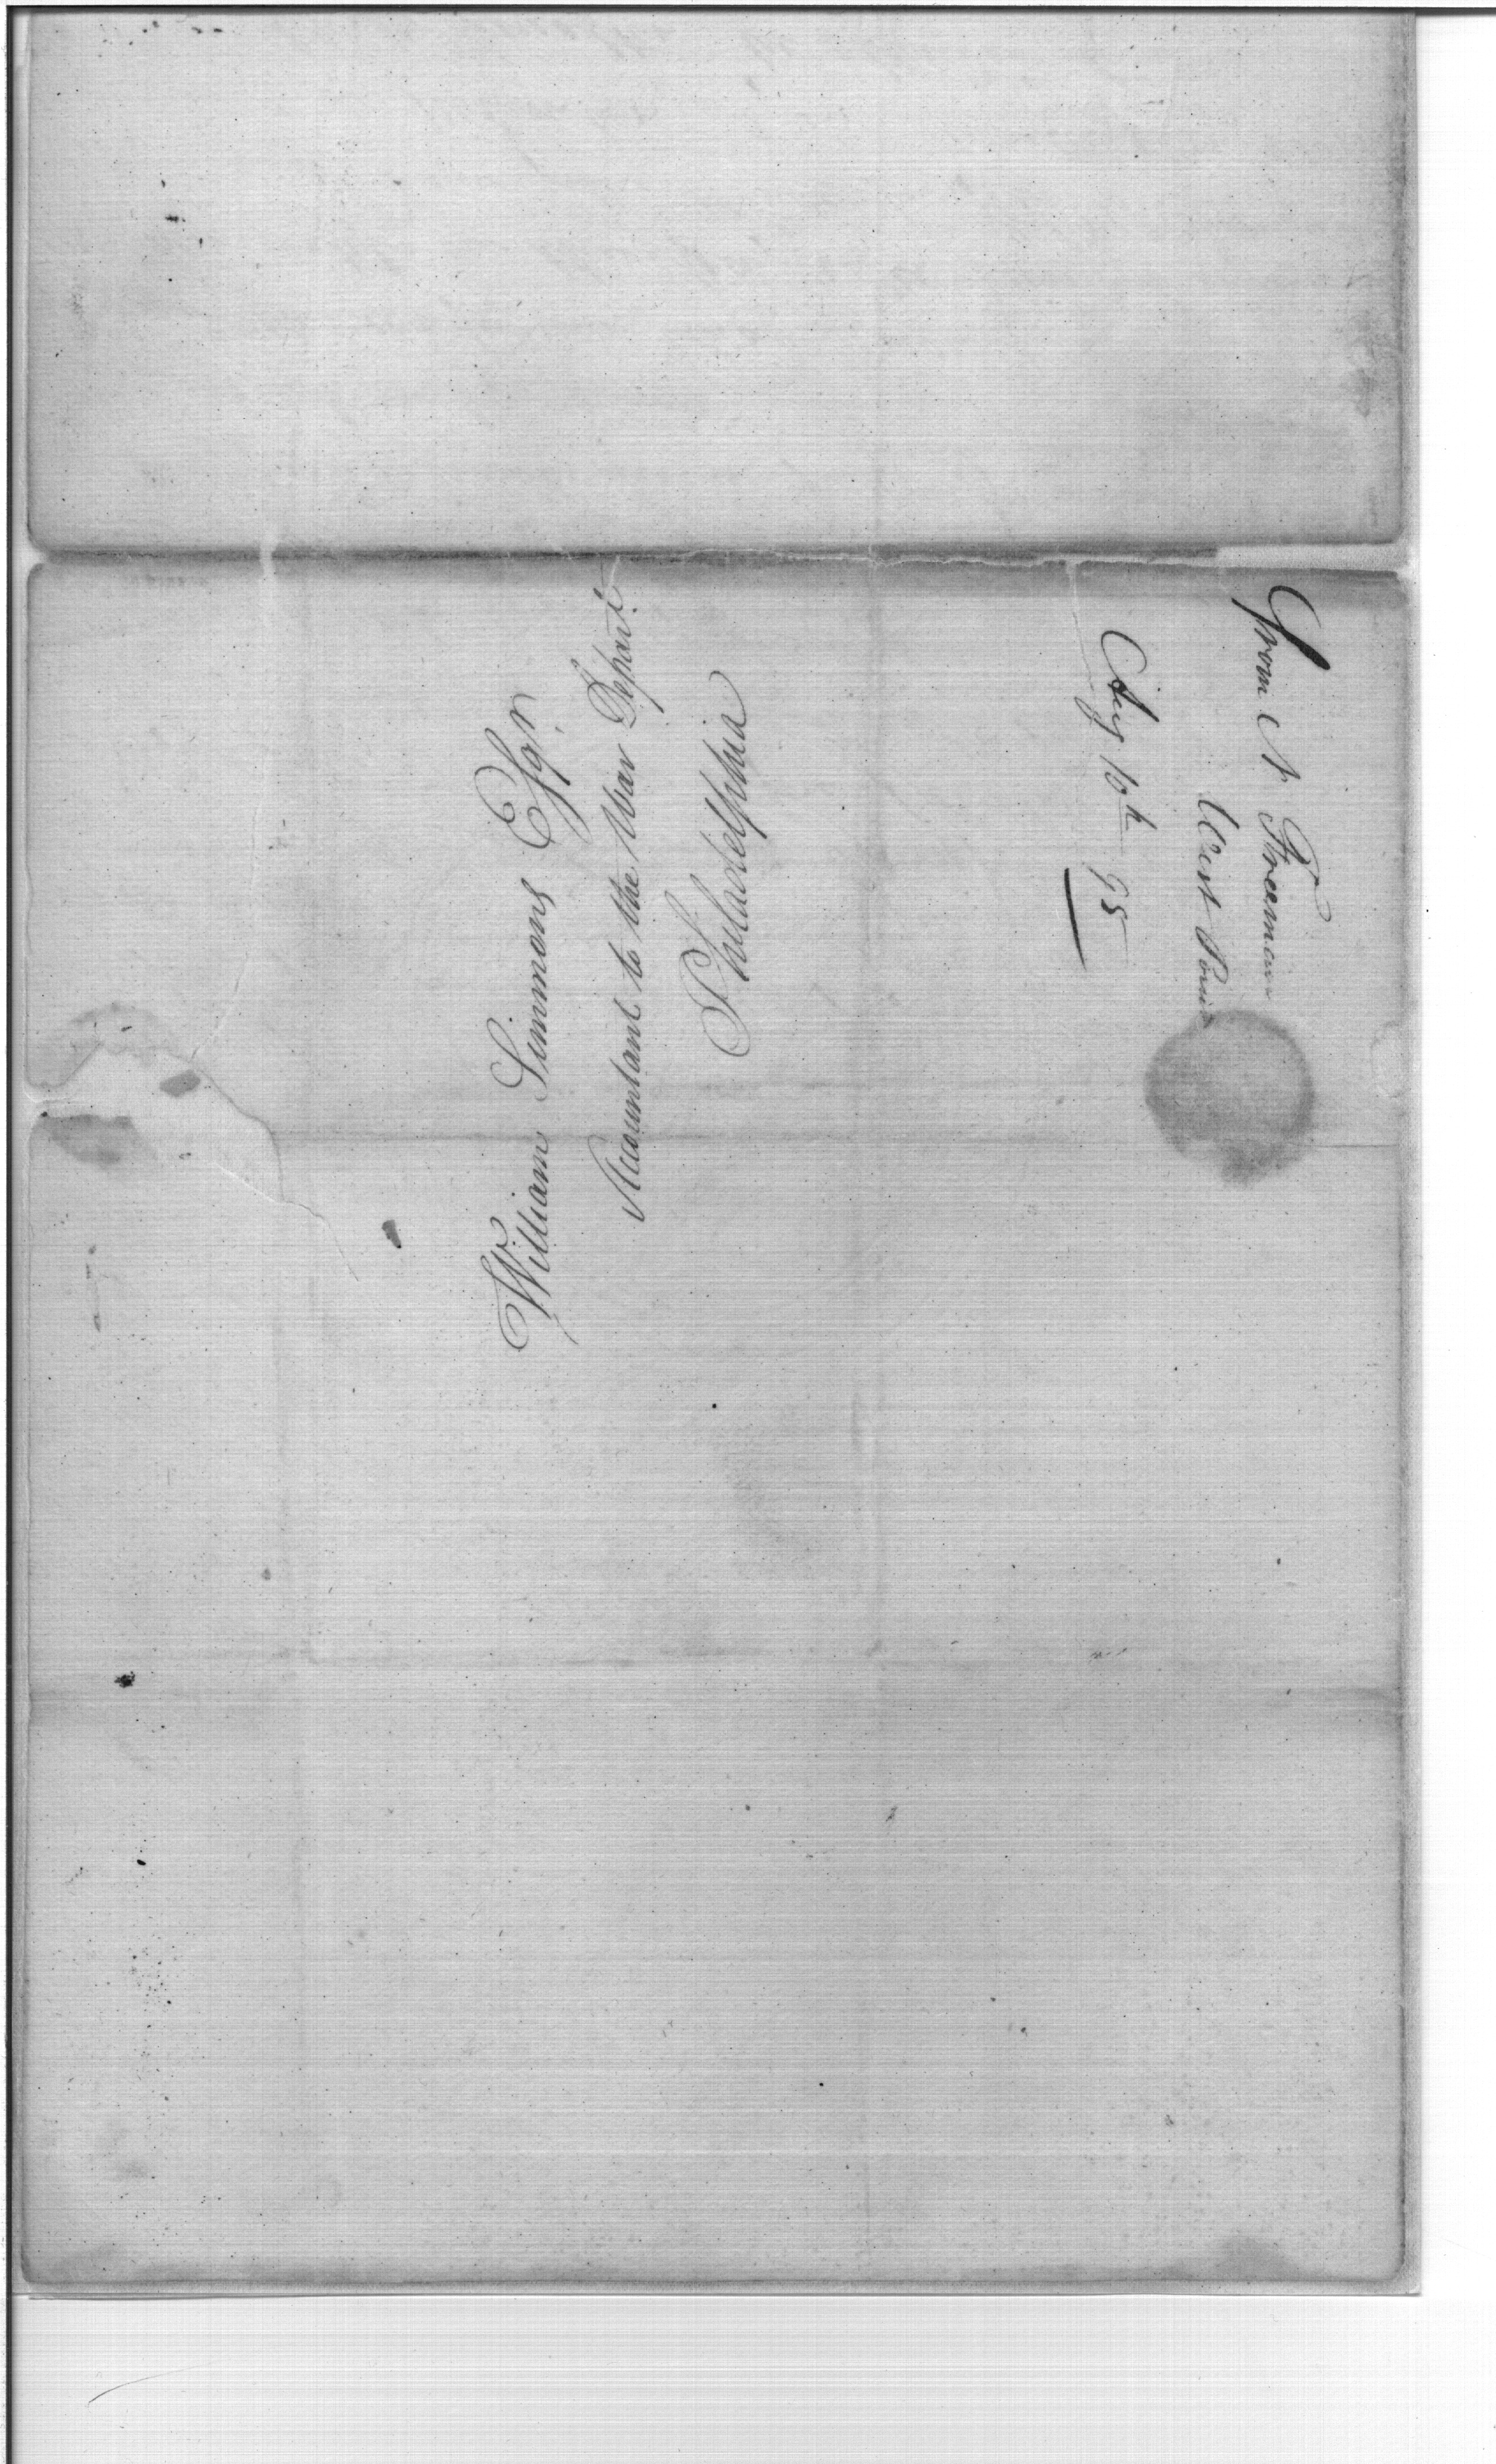 William Simmons Esqr.
Accountant to the War Depart.
Philadelphia
From N Freeman
West Point
Aug 10th 95